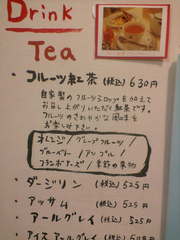 Drink
Tea
・フルーツ紅茶 (税込) 630円
自家製のフルーツシロップを加えて
お召し上がりいただく紅茶です。
フルーツのさわやかな風味を
お楽しみ下さい。
オレンジ/グレープフルーツ/
ブルーベリー/アップル/
フランボワーズ/季節の果物
・ダージリン (税込) 525円
・アッサム (税込) 525円
・アールグレイ (税込) 525円
・アイスアールグレイ (税込)